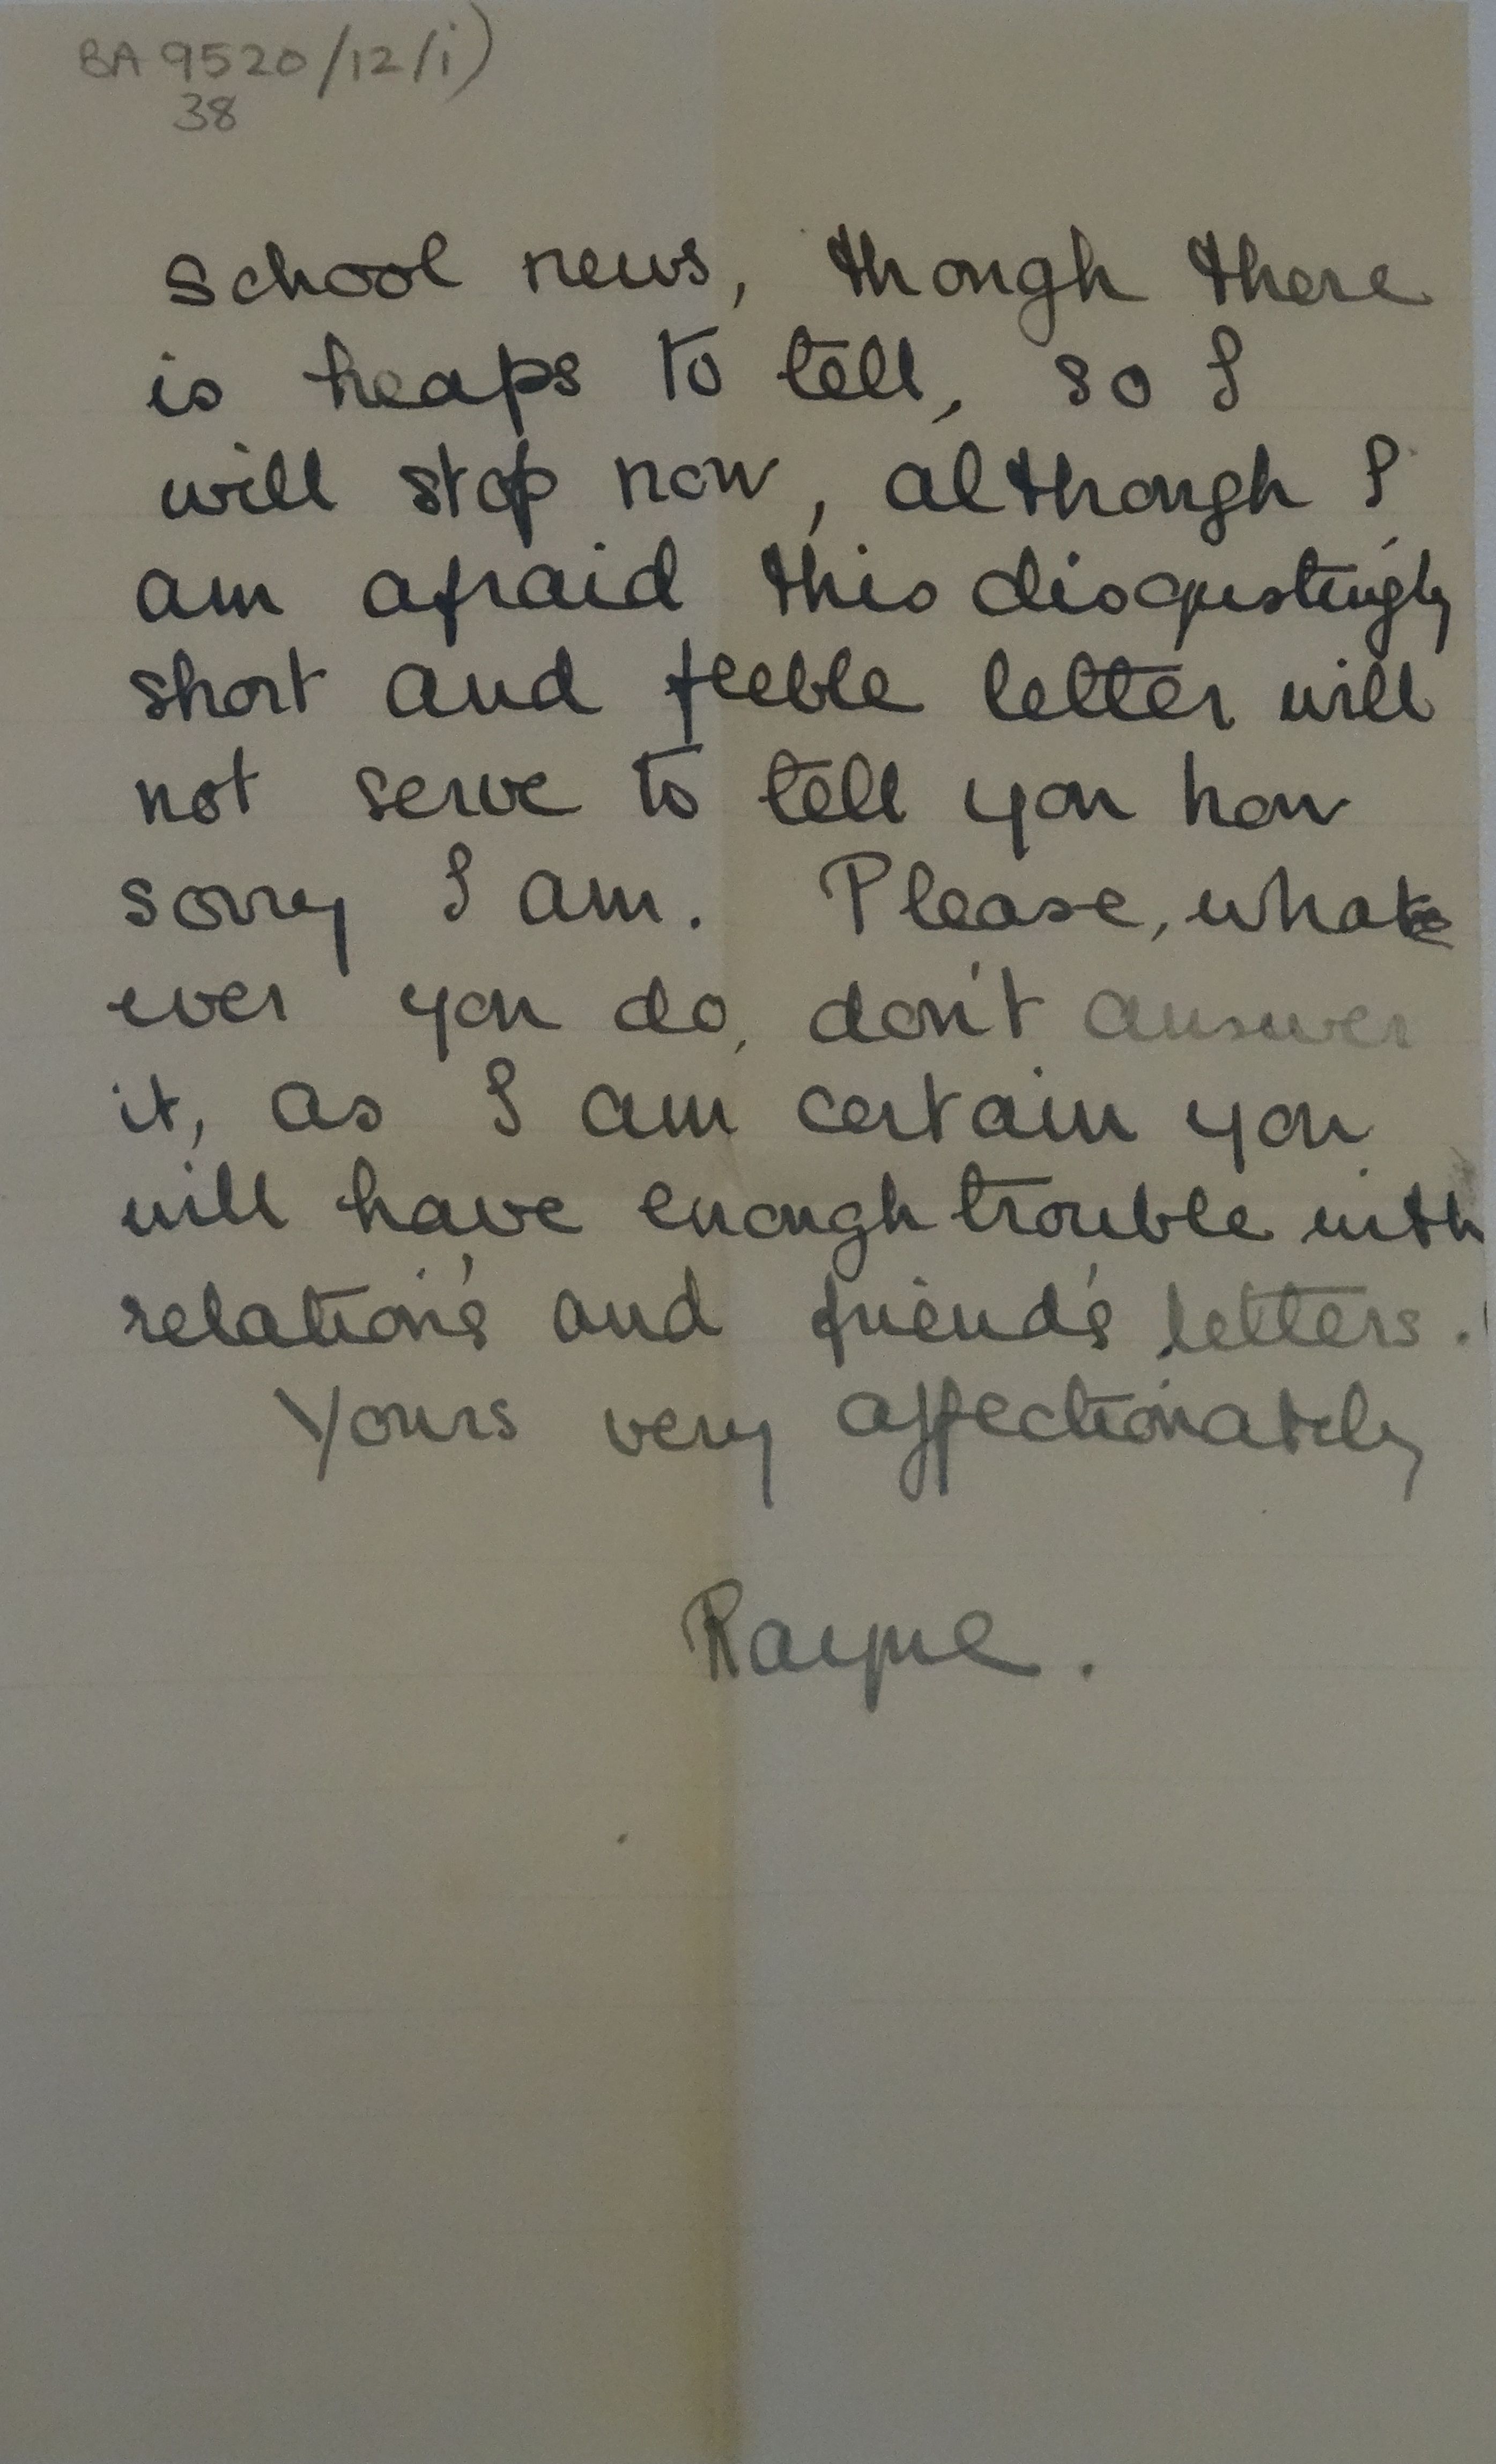 BA 9520/12/i)
38
school news, though there
is heaps to tell, so I
will stop now, although I
am afraid this disgustingly
short and feeble letter will
not serve to tell you how
sorry I am. Please, what
ever you do, don't answer
it, as I am certain you
will have enough trouble with
relation's and friend's letters.
Yours very affectionately
Rayne.